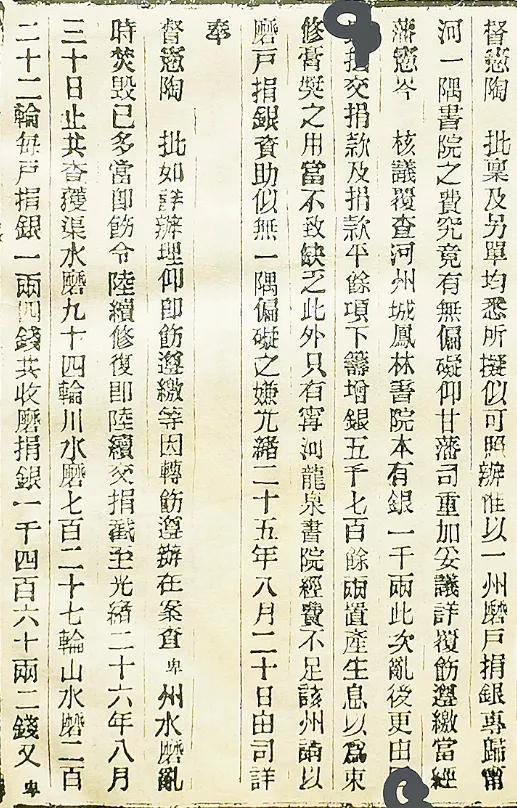 督憲陶　批稟及另單均悉所擬似可照辦惟以一州磨戶捐銀專歸甯
河一隅書院之費究竟有無偏礙仰甘藩司重加妥議詳覆飭遵繳當經
藩憲岑　核議覆查河州城鳳林書院本有銀一千兩此次亂後更由
捐交捐款及捐款平餘項下籌增銀五千七百餘兩置產生息以爲束
修膏獎之用當不致缺乏此外只有甯河龍泉書院經費不足該州請以
磨戶捐銀資助似無一隅偏礙之嫌光緒二十五年八月二十日由司詳
奉
督憲陶　批如詳辦理仰卽飭遵繳等因轉飭遵辦在案查卑州水磨亂
時焚毀已多當卽飭令陸續修復卽陸續交捐截至光緒二十六年八月
三十日止共查獲渠水磨九十四輪川水磨七百二十七輪山水磨二百
二十二輪每戶捐銀一兩四錢共收磨捐銀一千四百六十兩二錢又卑